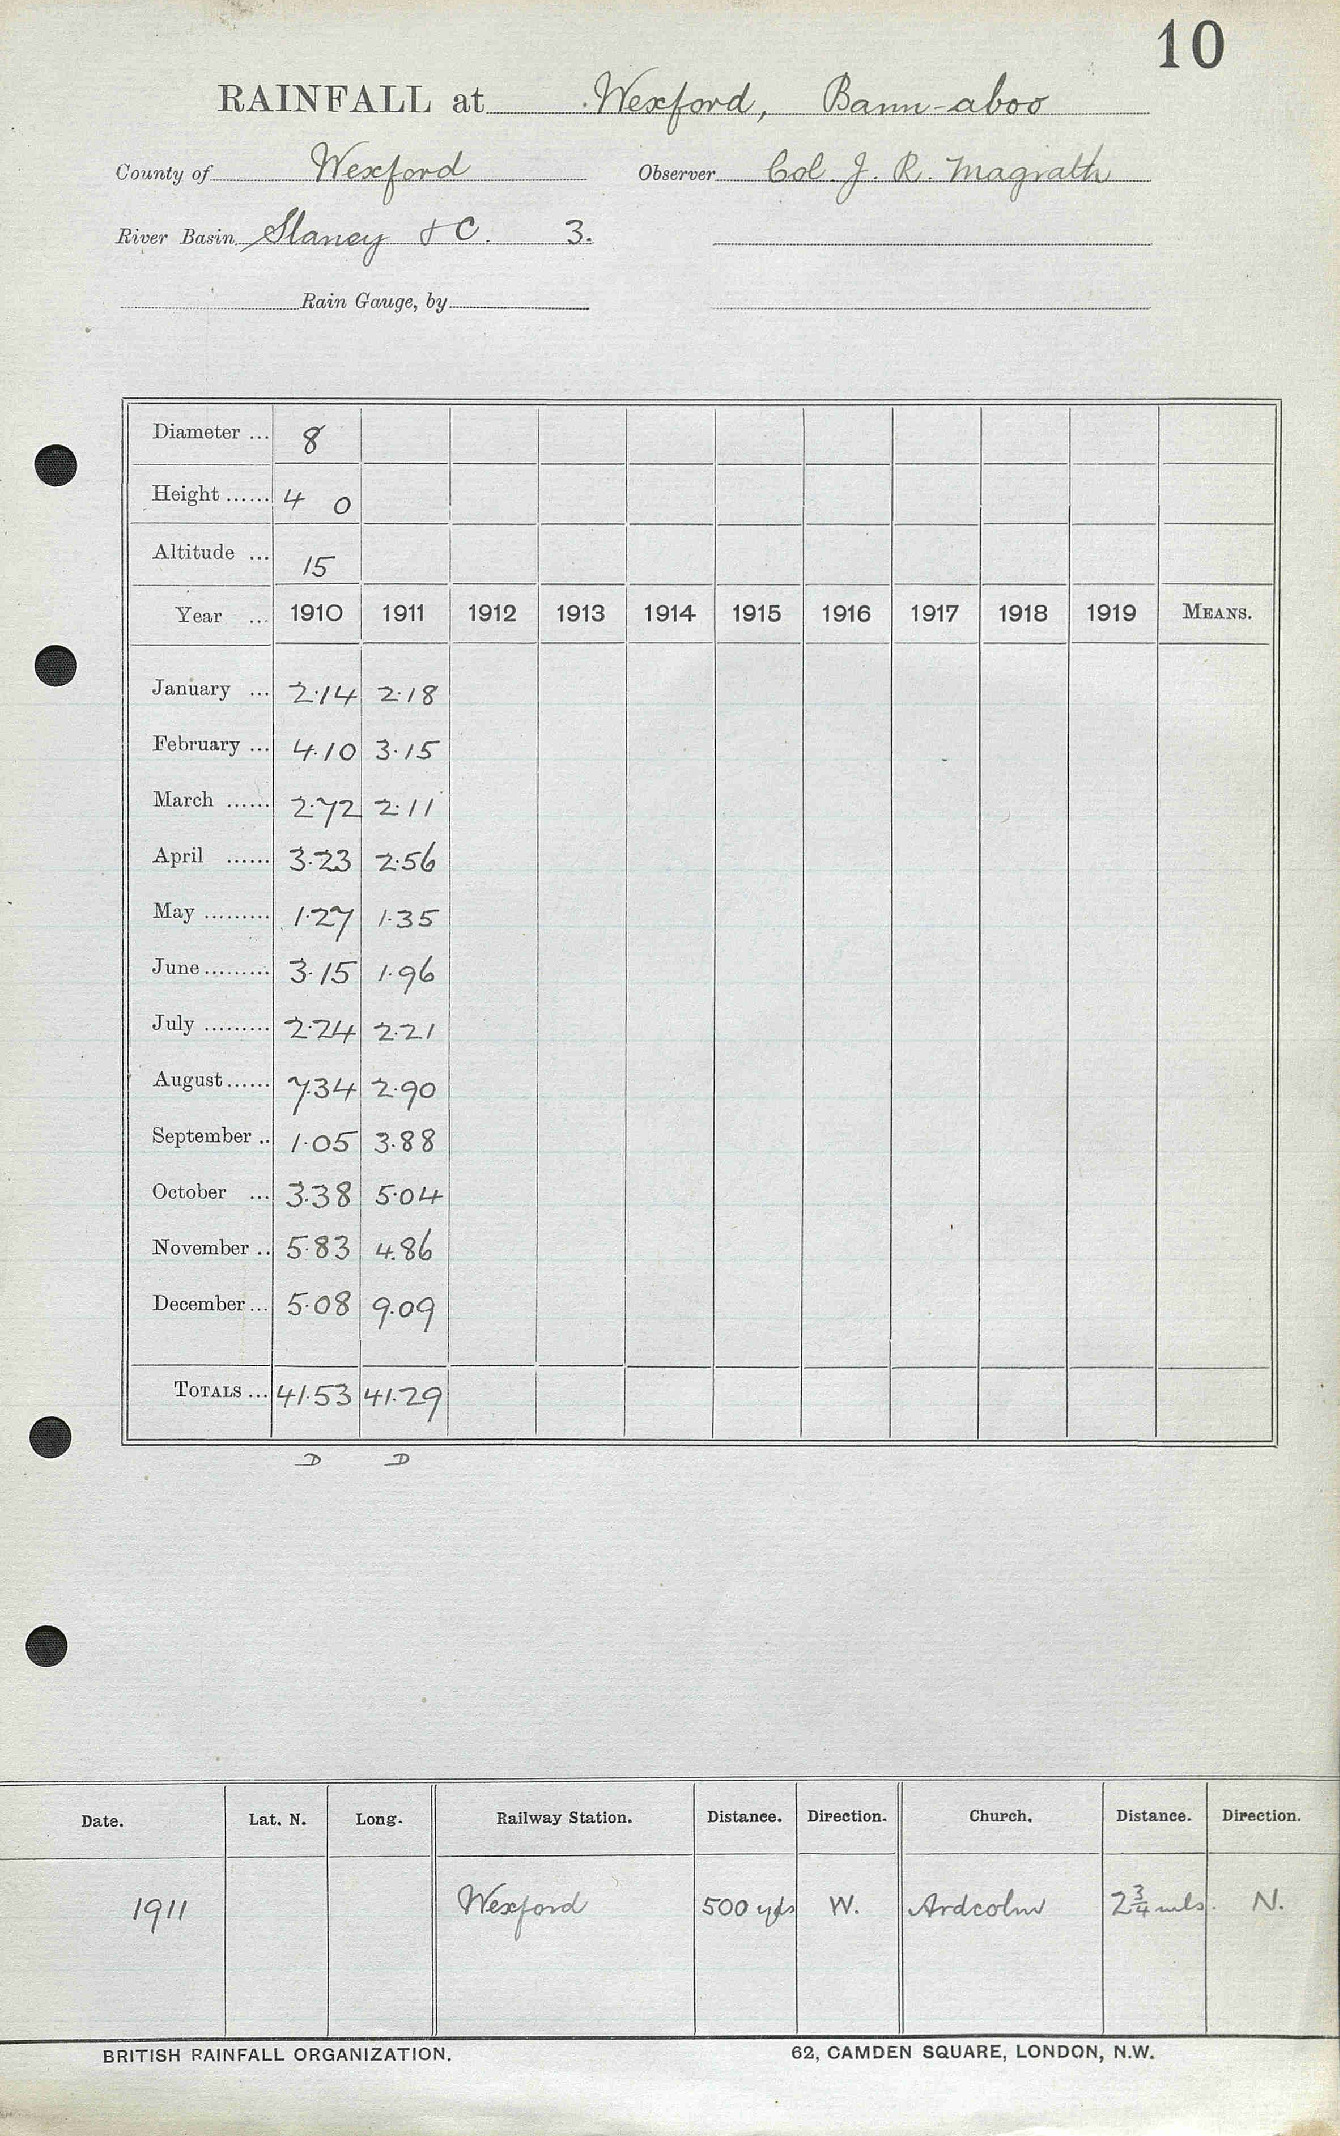 10
RAINFALL at Wexford, Bann-aboo
County of Wexford Observer Col. J. R. Magrath
River Basin Slaney & C. 3.
Rain Gauge, by
Diameter ... 8
Height ...... 4 0
Altitude ... 15
Year ... 1910 1911 1912 1913 1914 1915 1916 1917 1918 1919 MEANS.
January ... 2.14 2.18
February ... 4.10 3.15
March ...... 2.72 2.11
April ...... 3.23 2.56
May ......... 1.27 1.35
June ......... 3.15 1.96
July ......... 2.24 2.21
August ...... 7.34 2.90
September .. 1.05 3.88
October ... 3.38 5.04
November .. 5.83 4.86
December ... 5.08 9.09
TOTALS ... 41.53 41.29
D D
Date. Lat. N. Long. Railway Station. Distance. Direction. Church. Distance. Direction.
1911 Wexford 500 yds W. Ardcolm 2¾ mls. N.
BRITISH RAINFALL ORGANIZATION. 62, CAMDEN SQUARE, LONDON, N.W.